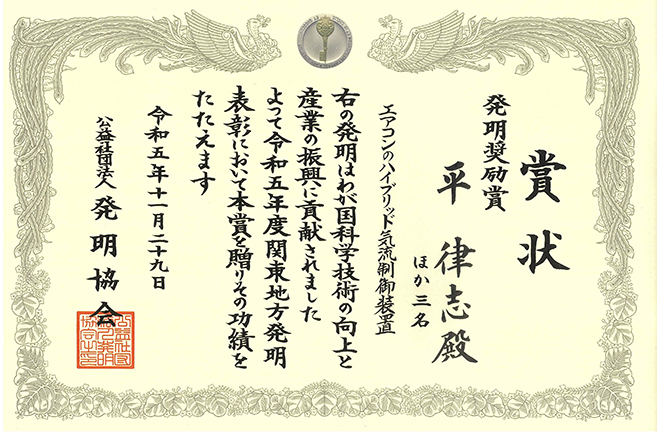 賞状
発明奨励賞
平律志殿
ほか三名
エアコンのハイブリッド気流制御装置
右の発明はわが国科学技術の向上と
産業の振興に貢献されました
よって令和五年度関東地方発明
表彰において本賞を贈りその功績を
たたえます
令和五年十一月二十九日
公益社団法人 発明協会